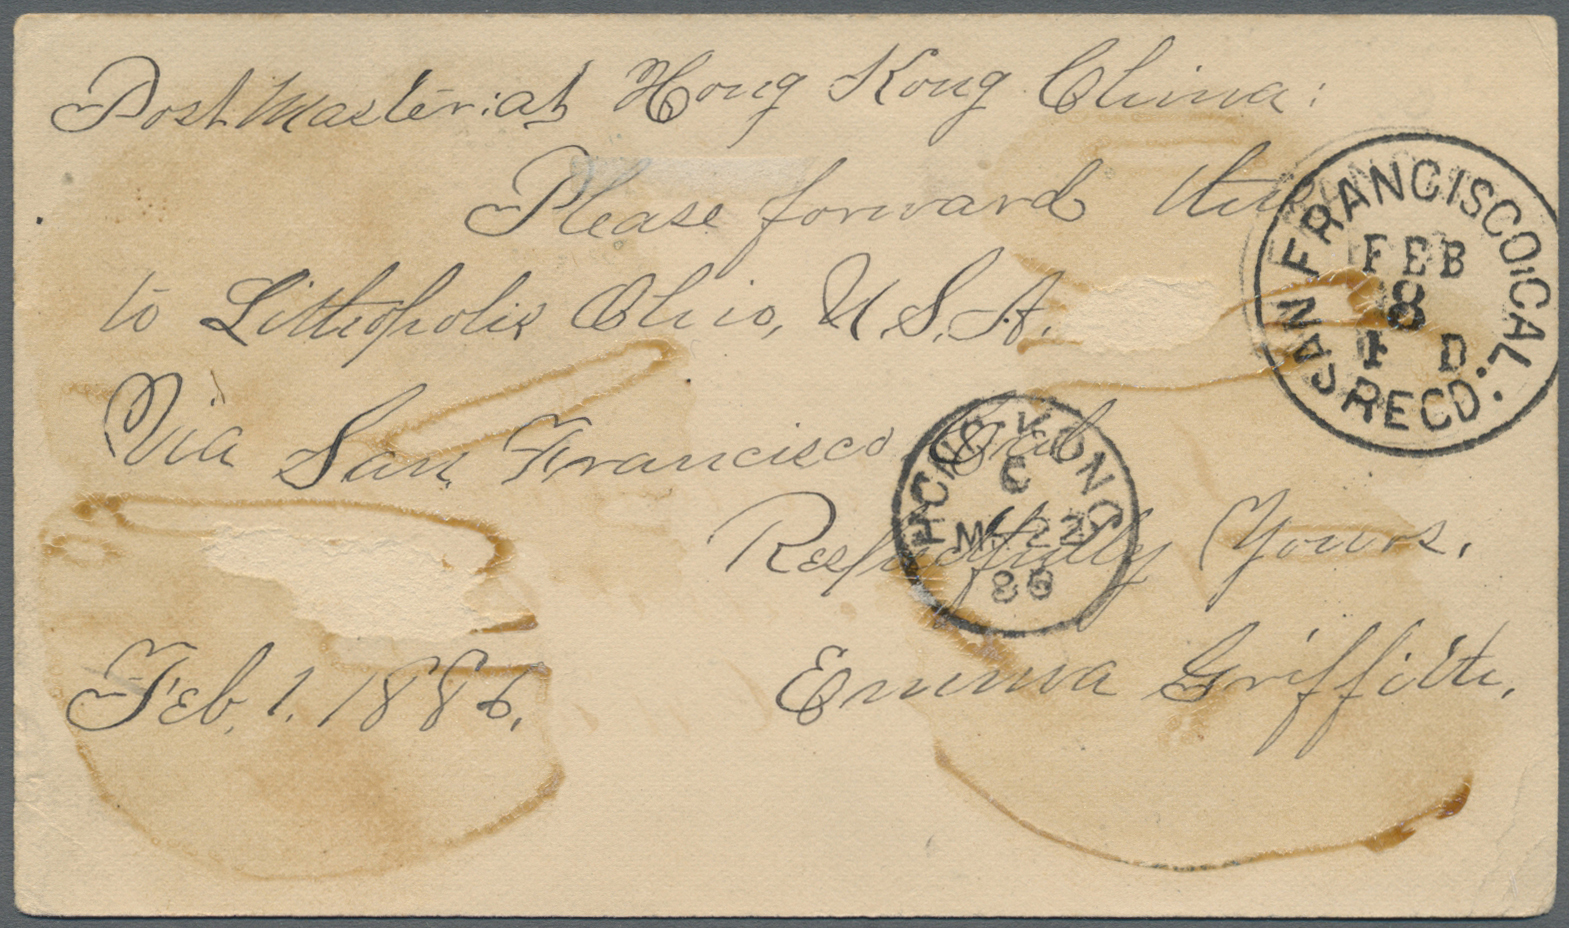 Post Master: at Hong Kong China:
Please forward this
to Lithopolis Ohio, U.S.A.
Via San Francisco, Cal
Respectfully Yours.
Feb. 1. 1886. Emma Griffith.
SAN FRANCISCO. CAL.
FEB
8
4 D.
RECD.
HONG KONG
C
MR 22
86